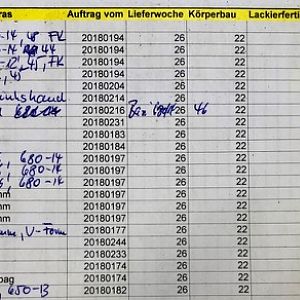 ras Auftrag vom Lieferwoche Körperbau Lackierfert
-14, 45 FK 20180194 26 22
20180194 26 22
FK 20180194 26 22
, 45 20180194 26 22
20180204 26 22
20180214 26 22
20180216 26 46 22
20180231 26 22
20180183 26 22
20180184 26 22
, 680-14 20180197 26 22
, 680-14 20180197 26 22
, 680-14 20180197 26 22
nm 20180197 26 22
nm 20180197 26 22
, V-Form 20180177 26 22
20180244 26 22
20180233 26 22
20180174 26 22
pag 20180174 26 22
, 650-13 20180182 26 22